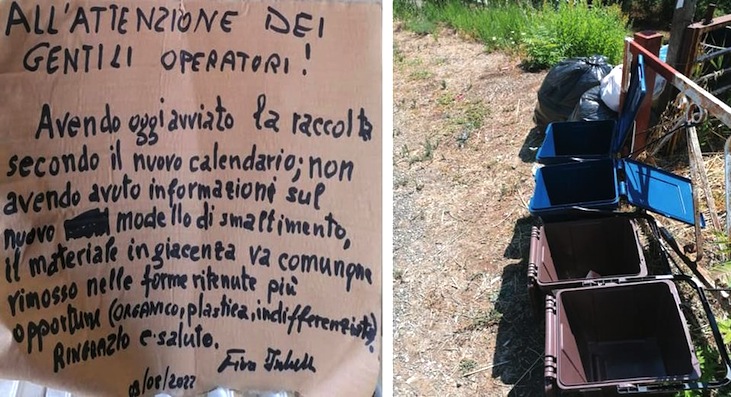 ALL'ATTENZIONE DEI
GENTILI OPERATORI!
Avendo oggi avviato la raccolta
secondo il nuovo calendario; non
avendo avuto informazioni sul
nuovo modello di smaltimento,
il materiale in giacenza va comunque
rimosso nelle forme ritenute più
opportune (ORGANICO, plastica, indifferenziato).
RINGRAZIO e saluto.